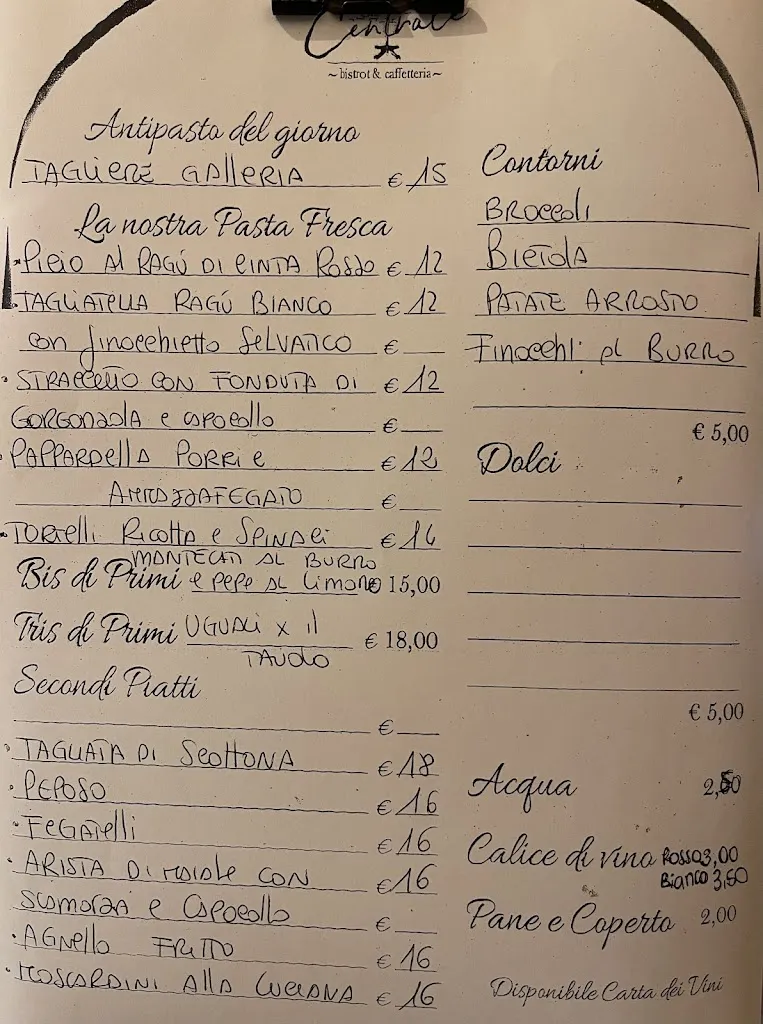 Centrale
~ bistrot & caffetteria ~
Antipasto del giorno
TAGLIERE GALLERIA € 15
La nostra Pasta Fresca
PICIO AL RAGÚ DI CINTA ROSSO € 12
TAGLIATELLA RAGÚ BIANCO € 12
con finocchietto SELVATICO €
STRACCETTO CON FONDUTA DI € 12
GORGONZOLA e capocollo €
PAPPARDELLA PORRI e € 12
AMMAZZAFEGATO €
TORTELLI Ricotta e SPINACI € 14
MANTECATI AL BURRO
Bis di Primi e PEPE AL Limone 15,00
Tris di Primi UGUALI x il € 18,00
TAVOLO
Secondi Piatti
€
TAGLIATA DI SCOTTONA € 18
PEPOSO € 16
FEGATELLI € 16
ARISTA DI MAIALE CON € 16
SCAMORZA e CAPOCOLLO €
AGNELLO FRITTO € 16
MOSCARDINI ALLA LUCIANA € 16
Contorni
BROCCOLI
BIETOLA
PATATE ARROSTO
FINOCCHI al BURRO
€ 5,00
Dolci
€ 5,00
Acqua 2,50
Calice di vino Rosso 3,00
Bianco 3,50
Pane e Coperto 2,00
Disponibile Carta dei Vini